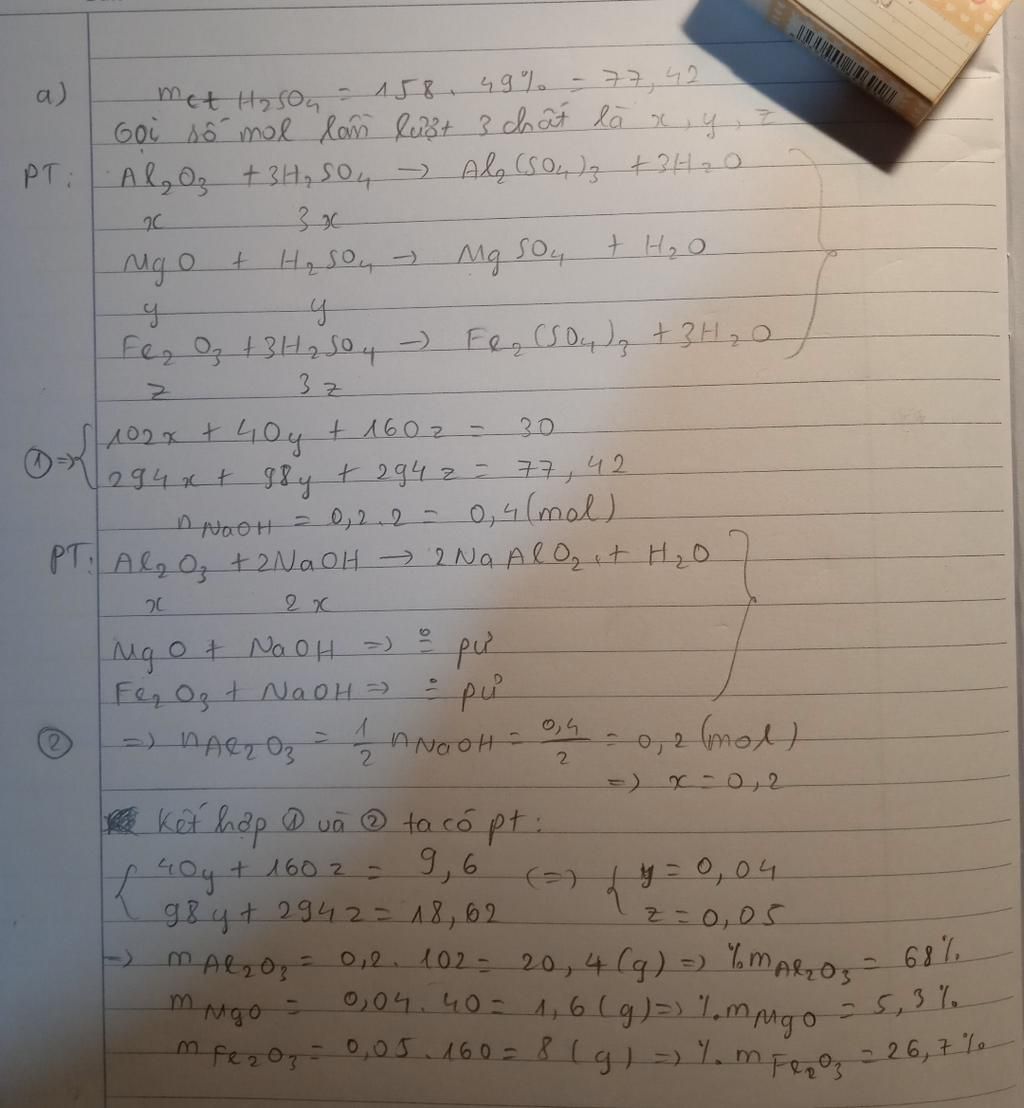 a) mct H₂SO₄ = 158 . 49% = 77,42
Gọi số mol lần lượt 3 chất là x, y, z
PT: Al₂O₃ + 3H₂SO₄ → Al₂(SO₄)₃ + 3H₂O
x 3x
MgO + H₂SO₄ → MgSO₄ + H₂O
y y
Fe₂O₃ + 3H₂SO₄ → Fe₂(SO₄)₃ + 3H₂O
z 3z
① => { 102x + 40y + 160z = 30
294x + 98y + 294z = 77,42
nNaOH = 0,2.2 = 0,4 (mol)
PT: Al₂O₃ + 2NaOH → 2NaAlO₂ + H₂O
x 2x
MgO + NaOH => pứ
Fe₂O₃ + NaOH => pứ
② => nAl₂O₃ = 1/2 nNaOH = 0,4/2 = 0,2 (mol)
=> x = 0,2
Kết hợp ① và ② ta có pt:
{ 40y + 160z = 9,6 (=) { y = 0,04
98y + 294z = 18,62 z = 0,05
=> mAl₂O₃ = 0,2 . 102 = 20,4 (g) => %mAl₂O₃ = 68%
mMgO = 0,04 . 40 = 1,6 (g) => %mMgO = 5,3%
mFe₂O₃ = 0,05 . 160 = 8 (g) => %mFe₂O₃ = 26,7%